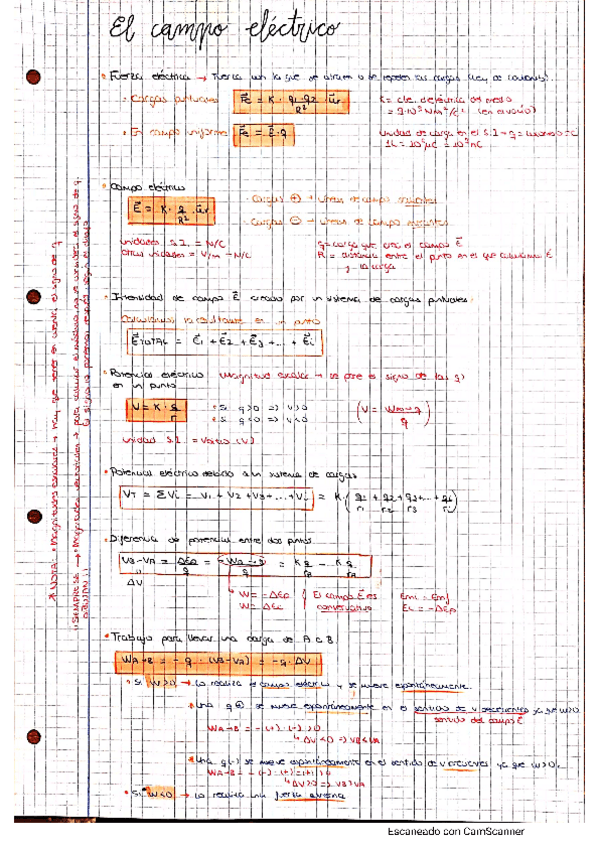 El campo eléctrico
Fuerza eléctrica → Fuerza con la que se atraen o se repelen las cargas (Ley de Coulomb).
· Cargas puntuales Fe = K · q1·q2 / R² · ur
K = cte.
= 9·10⁹ Nm²/C² (en el vacío)
· En campo uniforme Fe = E·q
Unidad de carga en el S.I → q = culombio = C
Campo eléctrico
E = K · q / R² · ur
· Cargas ⊕ → líneas de campo salientes
· Cargas ⊖ → líneas de campo
unidades S.I. = N/C
otras unidades = V/m → N/C
q = carga que crea el campo E
R = distancia entre el punto en el que calculamos E
y la carga
Intensidad de campo E creado por un sistema de cargas puntuales
Calculamos la resultante en un punto
E TOTAL = E1 + E2 + E3 + ... + Ei
Potencial eléctrico Magnitud escalar → se pone el signo de la(s) q)
en un punto
V = K · q / r
· Si q>0 => V>0
· Si q<0 => V<0
unidad S.I. = Voltio (V)
Potencial eléctrico debido a un sistema de cargas
VT = ΣVi = V1 + V2 + V3 + ... + Vi = K · (q1/r1 + q2/r2 + q3/r3 + ... + qi/ri)
Diferencia de potencial entre dos puntos
VB-VA = ΔEp / q = -WA→B / q = K q / rB - K q / rA
ΔV
W = -ΔEp
W = ΔEc
El campo E es
conservativo
Em = Em
Ec = -ΔEp
Trabajo para llevar una carga de A a B
WA→B = - q · (VB-VA) = -q · ΔV
· Si W>0 → Lo realiza el campo eléctrico y se mueve espontáneamente.
Una q ⊕ se mueve espontáneamente en el sentido de V decrecientes ya que W>0
sentido del campo E
WA→B = - (+) · (-) > 0
ΔV<0 => VB<VA
Una q(-) se mueve espontáneamente en el sentido de V crecientes ya que W>0.
WA→B = - (-) · (+) = (+) > 0
ΔV>0 => VB>VA
· Si W<0 → Lo realiza una fuerza externa
Escaneado con CamScanner